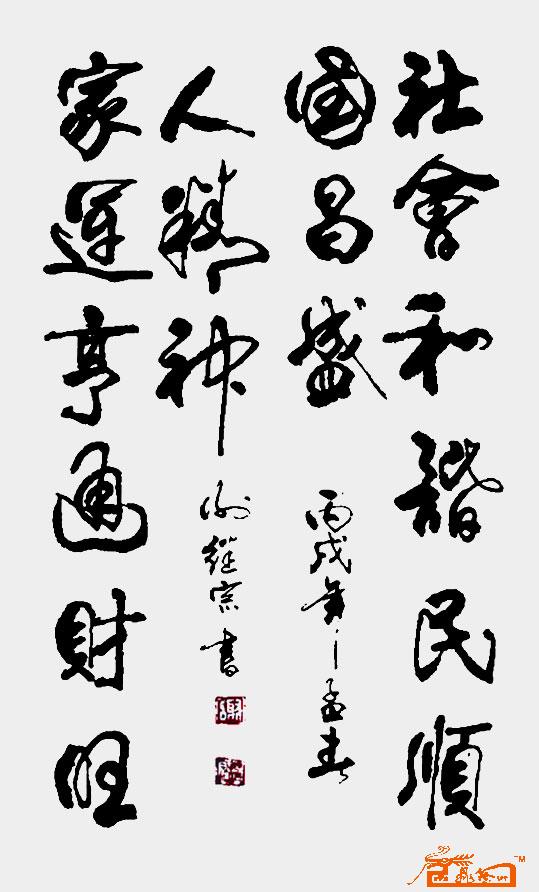 社會和諧民順
國昌盛
丙戌年之孟春
家運亨通財旺
人精神
謝継宗書